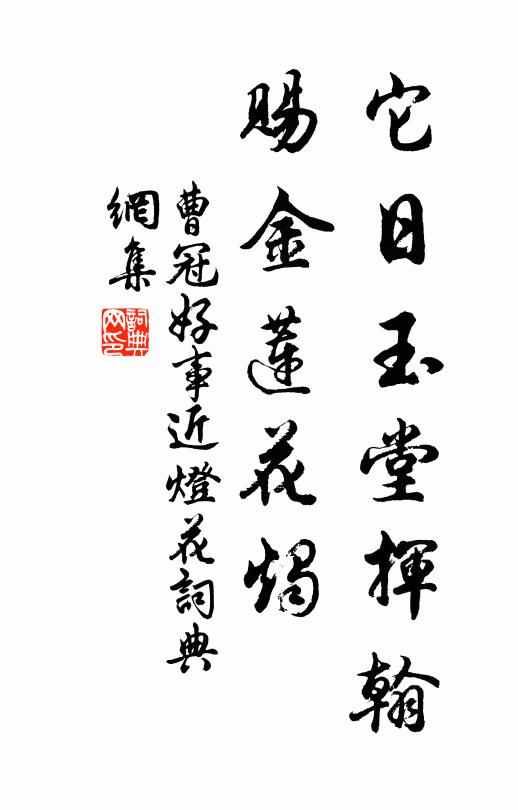 它日玉堂揮翰
賜金蓮花燭
曹冠好事近燈花詞典
網集
詞典网印